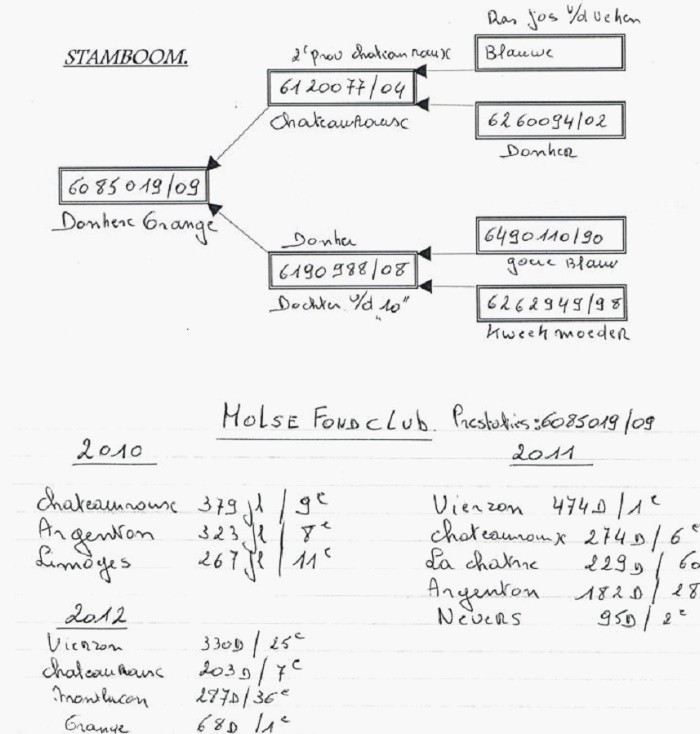 Ras jos v/d vehen
STAMBOOM.
2e prov chateauroux
Blauwe
6120077/04
Chateauroux
6260094/02
Donker
6085019/09
Donkere Orange
6490110/90
goeie Blauw
Donker
6190988/08
Dochter v/d "10"
6262949/98
Kweekmoeder
MOLSE FONDCLUB. Prestaties: 6085019/09
2010
Chateauroux 379 jl / 9e
Argenton 323 jl / 8e
Limoges 267 jl / 11e
2011
Vierzon 474D / 1e
chateauroux 274D / 6e
La chatre 229D / 60
Argenton 182D / 28
NEVERS 95D / 2e
2012
Vierzon 330D / 25e
chateauroux 203D / 7e
Montlucon 287D / 36e
Orange 68D / 1e